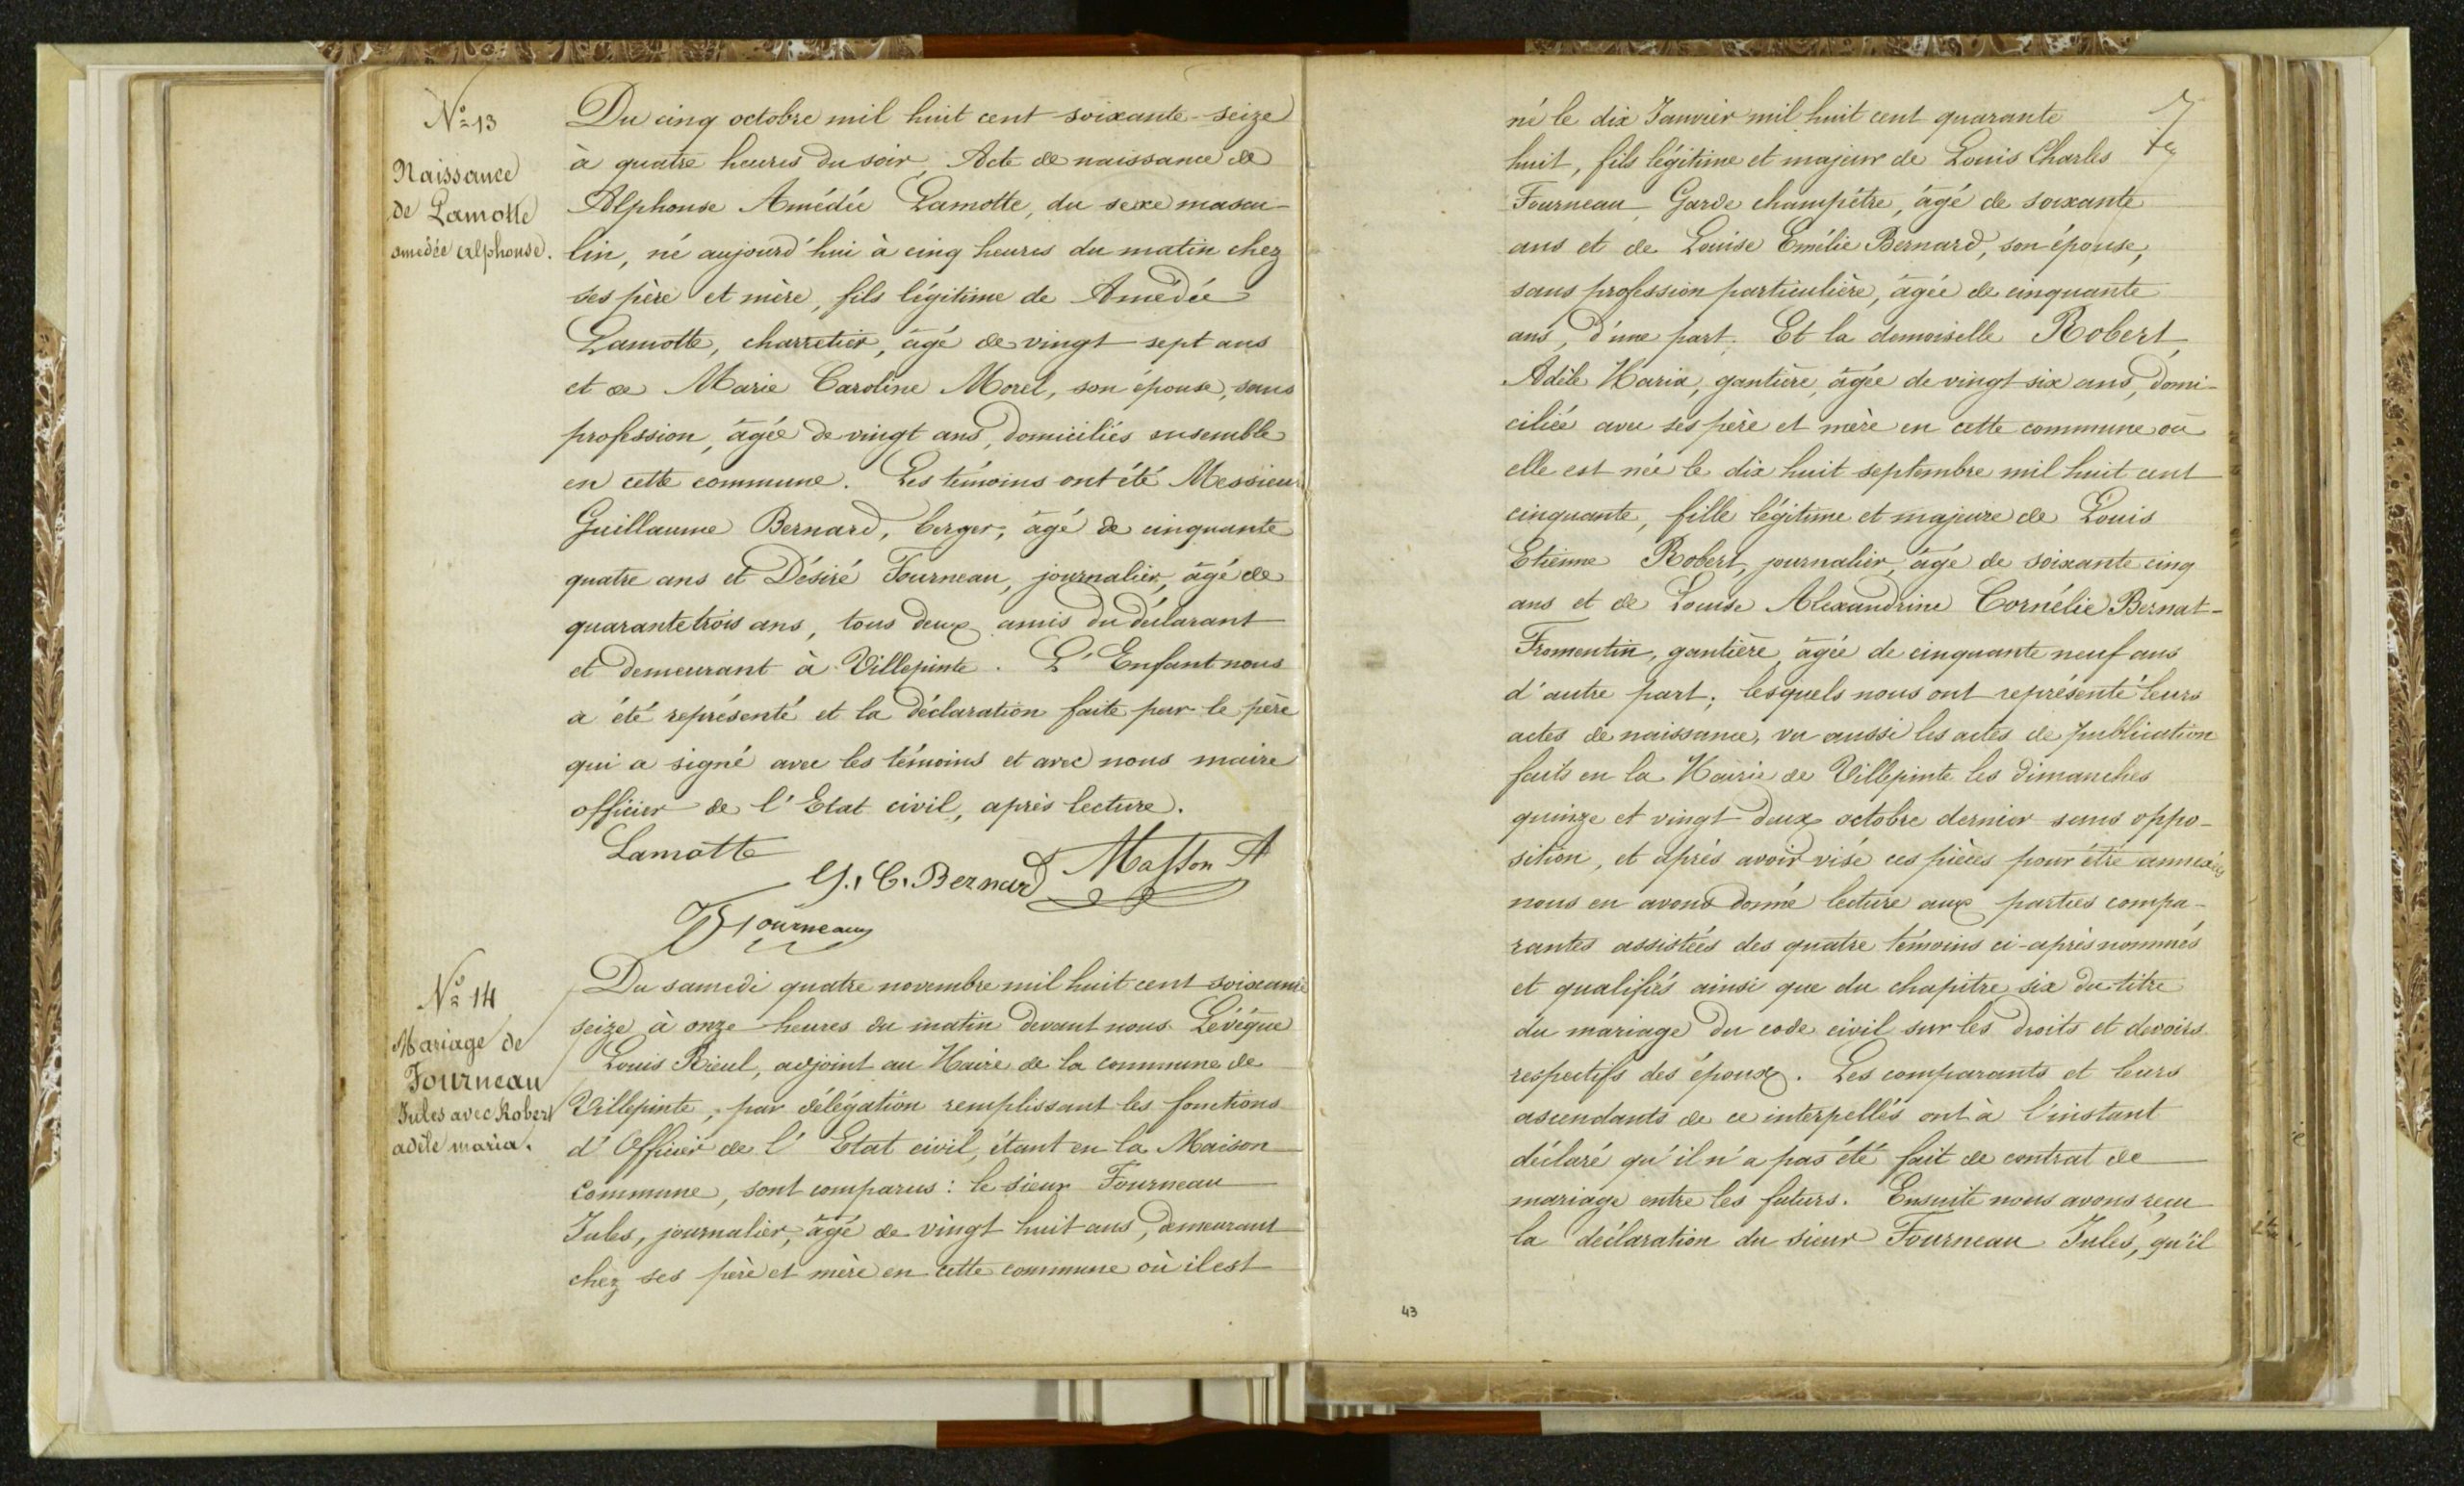 N° 13
Naissance
de Lamotte
amédée alphonse.
Du cinq octobre mil huit cent soixante-seize
à quatre heures du soir, Acte de naissance de
Alphonse Amédée Lamotte, du sexe mascu-
lin, né aujourd'hui à cinq heures du matin chez
ses père et mère, fils légitime de Amédée
Lamotte, charretier, âgé de vingt sept ans
et de Marie Caroline Morel, son épouse, sans
profession, âgée de vingt ans, domiciliés ensemble
en cette commune. Les témoins ont été Messieurs
Guillaume Bernard, berger, âgé de cinquante
quatre ans et Désiré Fourneau, journalier, âgé de
quarante trois ans, tous deux amis du déclarant
et demeurant à Villepinte. L'Enfant nous
a été représenté et la déclaration faite par le père
qui a signé avec les témoins et avec nous maire
officier de l'Etat civil, après lecture.
Lamotte
G. C. Bernard Masson A
Fourneau
N° 14
Mariage de
Fourneau
Jules avec Robert
adèle maria.
Du samedi quatre novembre mil huit cent soixante
seize à onze heures du matin devant nous Lévêque
Louis Rieul, adjoint au Maire de la commune de
Villepinte, par délégation remplissant les fonctions
d'Officier de l'Etat civil, étant en la Maison
commune, sont comparus : le sieur Fourneau
Jules, journalier, âgé de vingt huit ans, demeurant
chez ses père et mère en cette commune où il est
7
né le dix Janvier mil huit cent quarante
huit, fils légitime et majeur de Louis Charles
Fourneau, Garde champêtre, âgé de soixante
ans et de Louise Emélie Bernard, son épouse,
sans profession particulière, âgée de cinquante
ans, d'une part. Et la demoiselle Robert,
Adèle Maria, gantière, âgée de vingt six ans, domi-
ciliée avec ses père et mère en cette commune où
elle est née le dix huit septembre mil huit cent
cinquante, fille légitime et majeure de Louis
Etienne Robert, journalier, âgé de soixante cinq
ans et de Louise Alexandrine Cornélie Bernat-
Fromentin, gantière, âgée de cinquante neuf ans
d'autre part ; lesquels nous ont représenté leurs
actes de naissance, vu aussi les actes de publication
faits en la Mairie de Villepinte les dimanches
quinze et vingt deux octobre dernier sans oppo-
sition, et après avoir visé ces pièces pour être annexées
nous en avons donné lecture aux parties compa-
rantes assistées des quatre témoins ci-après nommés
et qualifiés ainsi que du chapitre six du titre
du mariage du code civil sur les droits et devoirs
respectifs des époux. Les comparants et leurs
ascendants de ce interpellés ont à l'instant
déclaré qu'il n'a pas été fait de contrat de
mariage entre les futurs. Ensuite nous avons reçu
la déclaration du sieur Fourneau Jules, qu'il
43